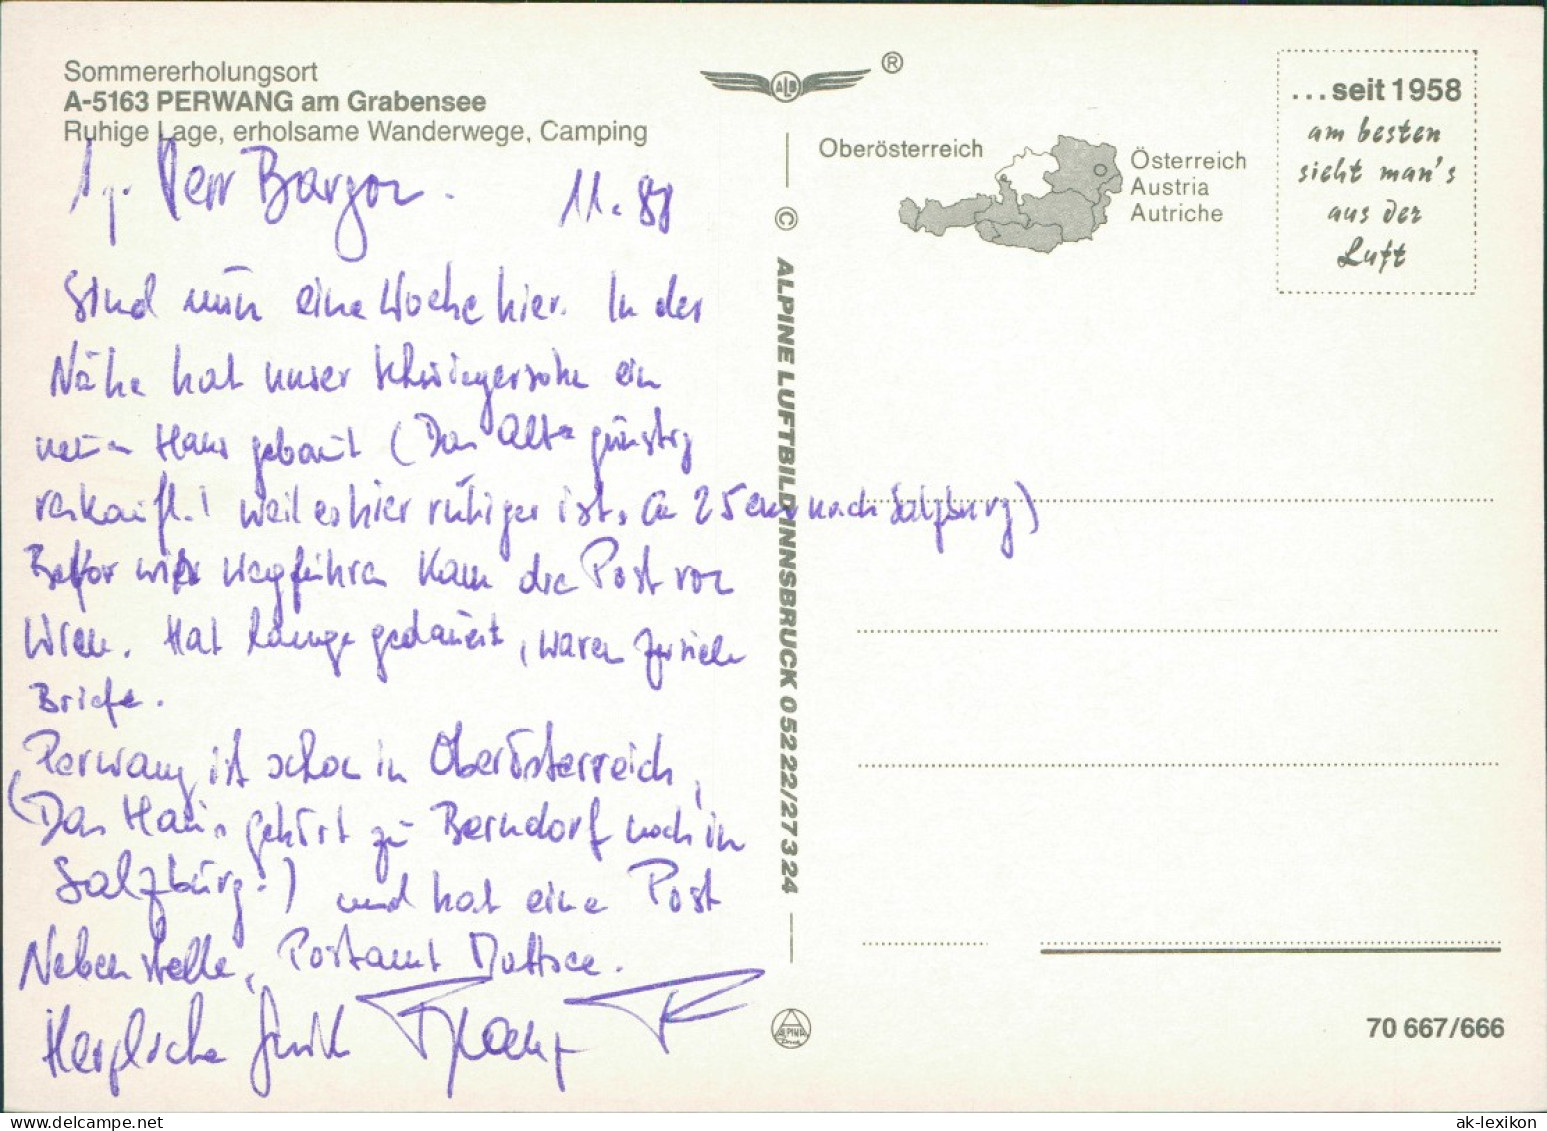 Sommererholungsort
A-5163 PERWANG am Grabensee
Ruhige Lage, erholsame Wanderwege, Camping
ALB
®
Oberösterreich
Österreich
Austria
Autriche
...seit 1958
am besten
sieht man's
aus der
Luft
Herr
11.
Sind nun eine Woche hier. In der
Nähe hat unser Schwiegersohn ein
neues Haus gebaut (Das Alte günstig
verkauft! weil es hier ruhiger ist. Ca 25 km nach Salzburg)
Bevor wir wegfuhren kam die Post von
Wien. Hat lange gedauert, waren zuviele
Briefe.
Perwang ist schon in Oberösterreich,
(Das Haus gehört zu Berndorf noch in
Salzburg!) und hat eine Post
Nebenstelle, Postamt Mattsee.
Herzliche
© ALPINE LUFTBILD INNSBRUCK 0 52 22/2 73 24
ALPINE
70 667/666
www.delcampe.net
ak-lexikon